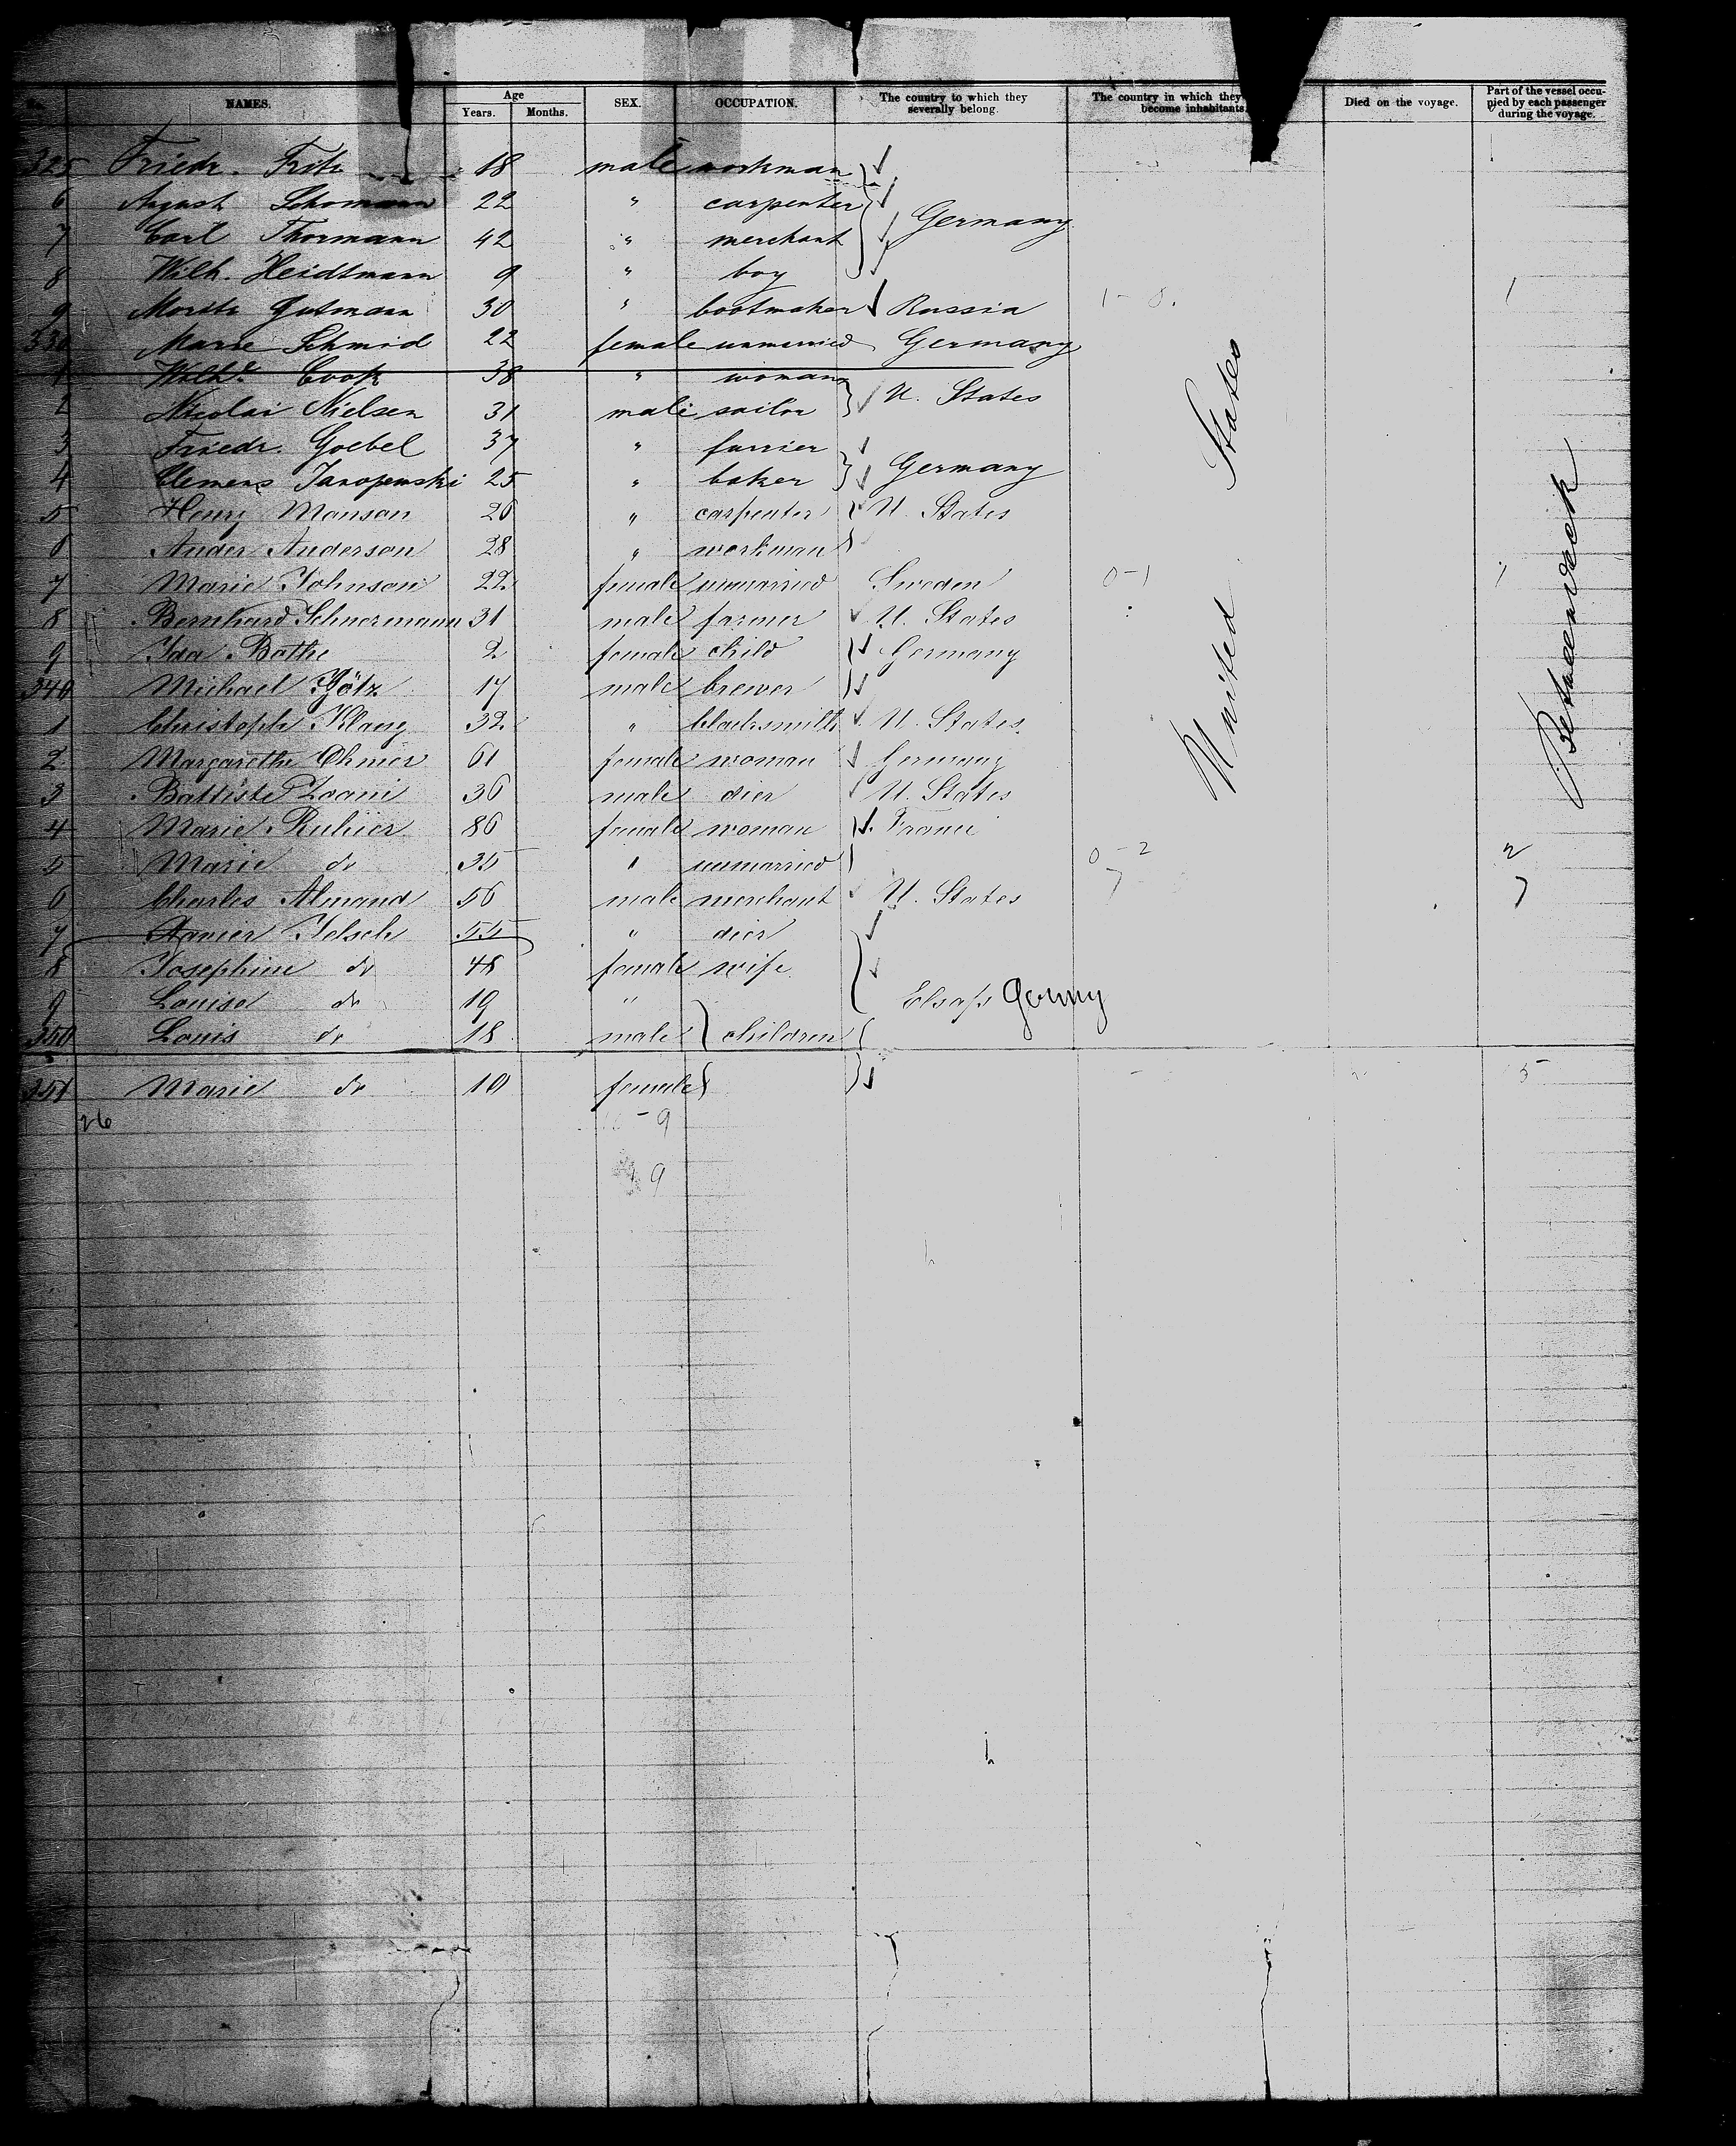 NAMES. Age Years. Months. SEX. OCCUPATION. The country to which they severally belong. The country in which they become inhabitants. Died on the voyage. Part of the vessel occupied by each passenger during the voyage.
325 Friedr. Fritz 18 male workman
6 August Schomann 22 " carpenter Germany
7 Carl Thormann 42 " merchant
8 Wilh. Heidtmann 9 " boy
9 Moritz Gutmann 30 " bootmaker Russia 1-0. 1
330 Marie Schmid 22 female unmarried Germany
1 Wilhe Cook 38 " woman
2 Nicolai Nielsen 31 male sailor U. States
3 Friedr. Goebel 37 " furrier
4 Clemens Jaropewski 25 " baker Germany
5 Henry Manson 26 " carpenter U. States
6 Ander Anderson 28 " workman
7 Marie Johnson 22 female unmarried Sweden 0-1 1
8 Bernhard Schuermann 31 male farmer U. States
9 Ida Bathe 2 female child Germany
340 Michael Götz 17 male brewer
1 Christoph Klang 32 " blacksmith U. States
2 Margarethe Ohmer 61 female woman Germany
3 Battiste Zoani 36 male dier U. States
4 Marie Ruhier 86 female woman France
5 Marie do 35 " unmarried 0-2 2
6 Charles Almand 56 male merchant U. States 7 7
7 Xavier Jelsch 55 " dier
8 Josephine do 48 female wife
9 Louise do 19 " Elsass Germy
350 Louis do 18 male children
351 Marie do 10 female 5
26 9
9
United States
Betweendeck